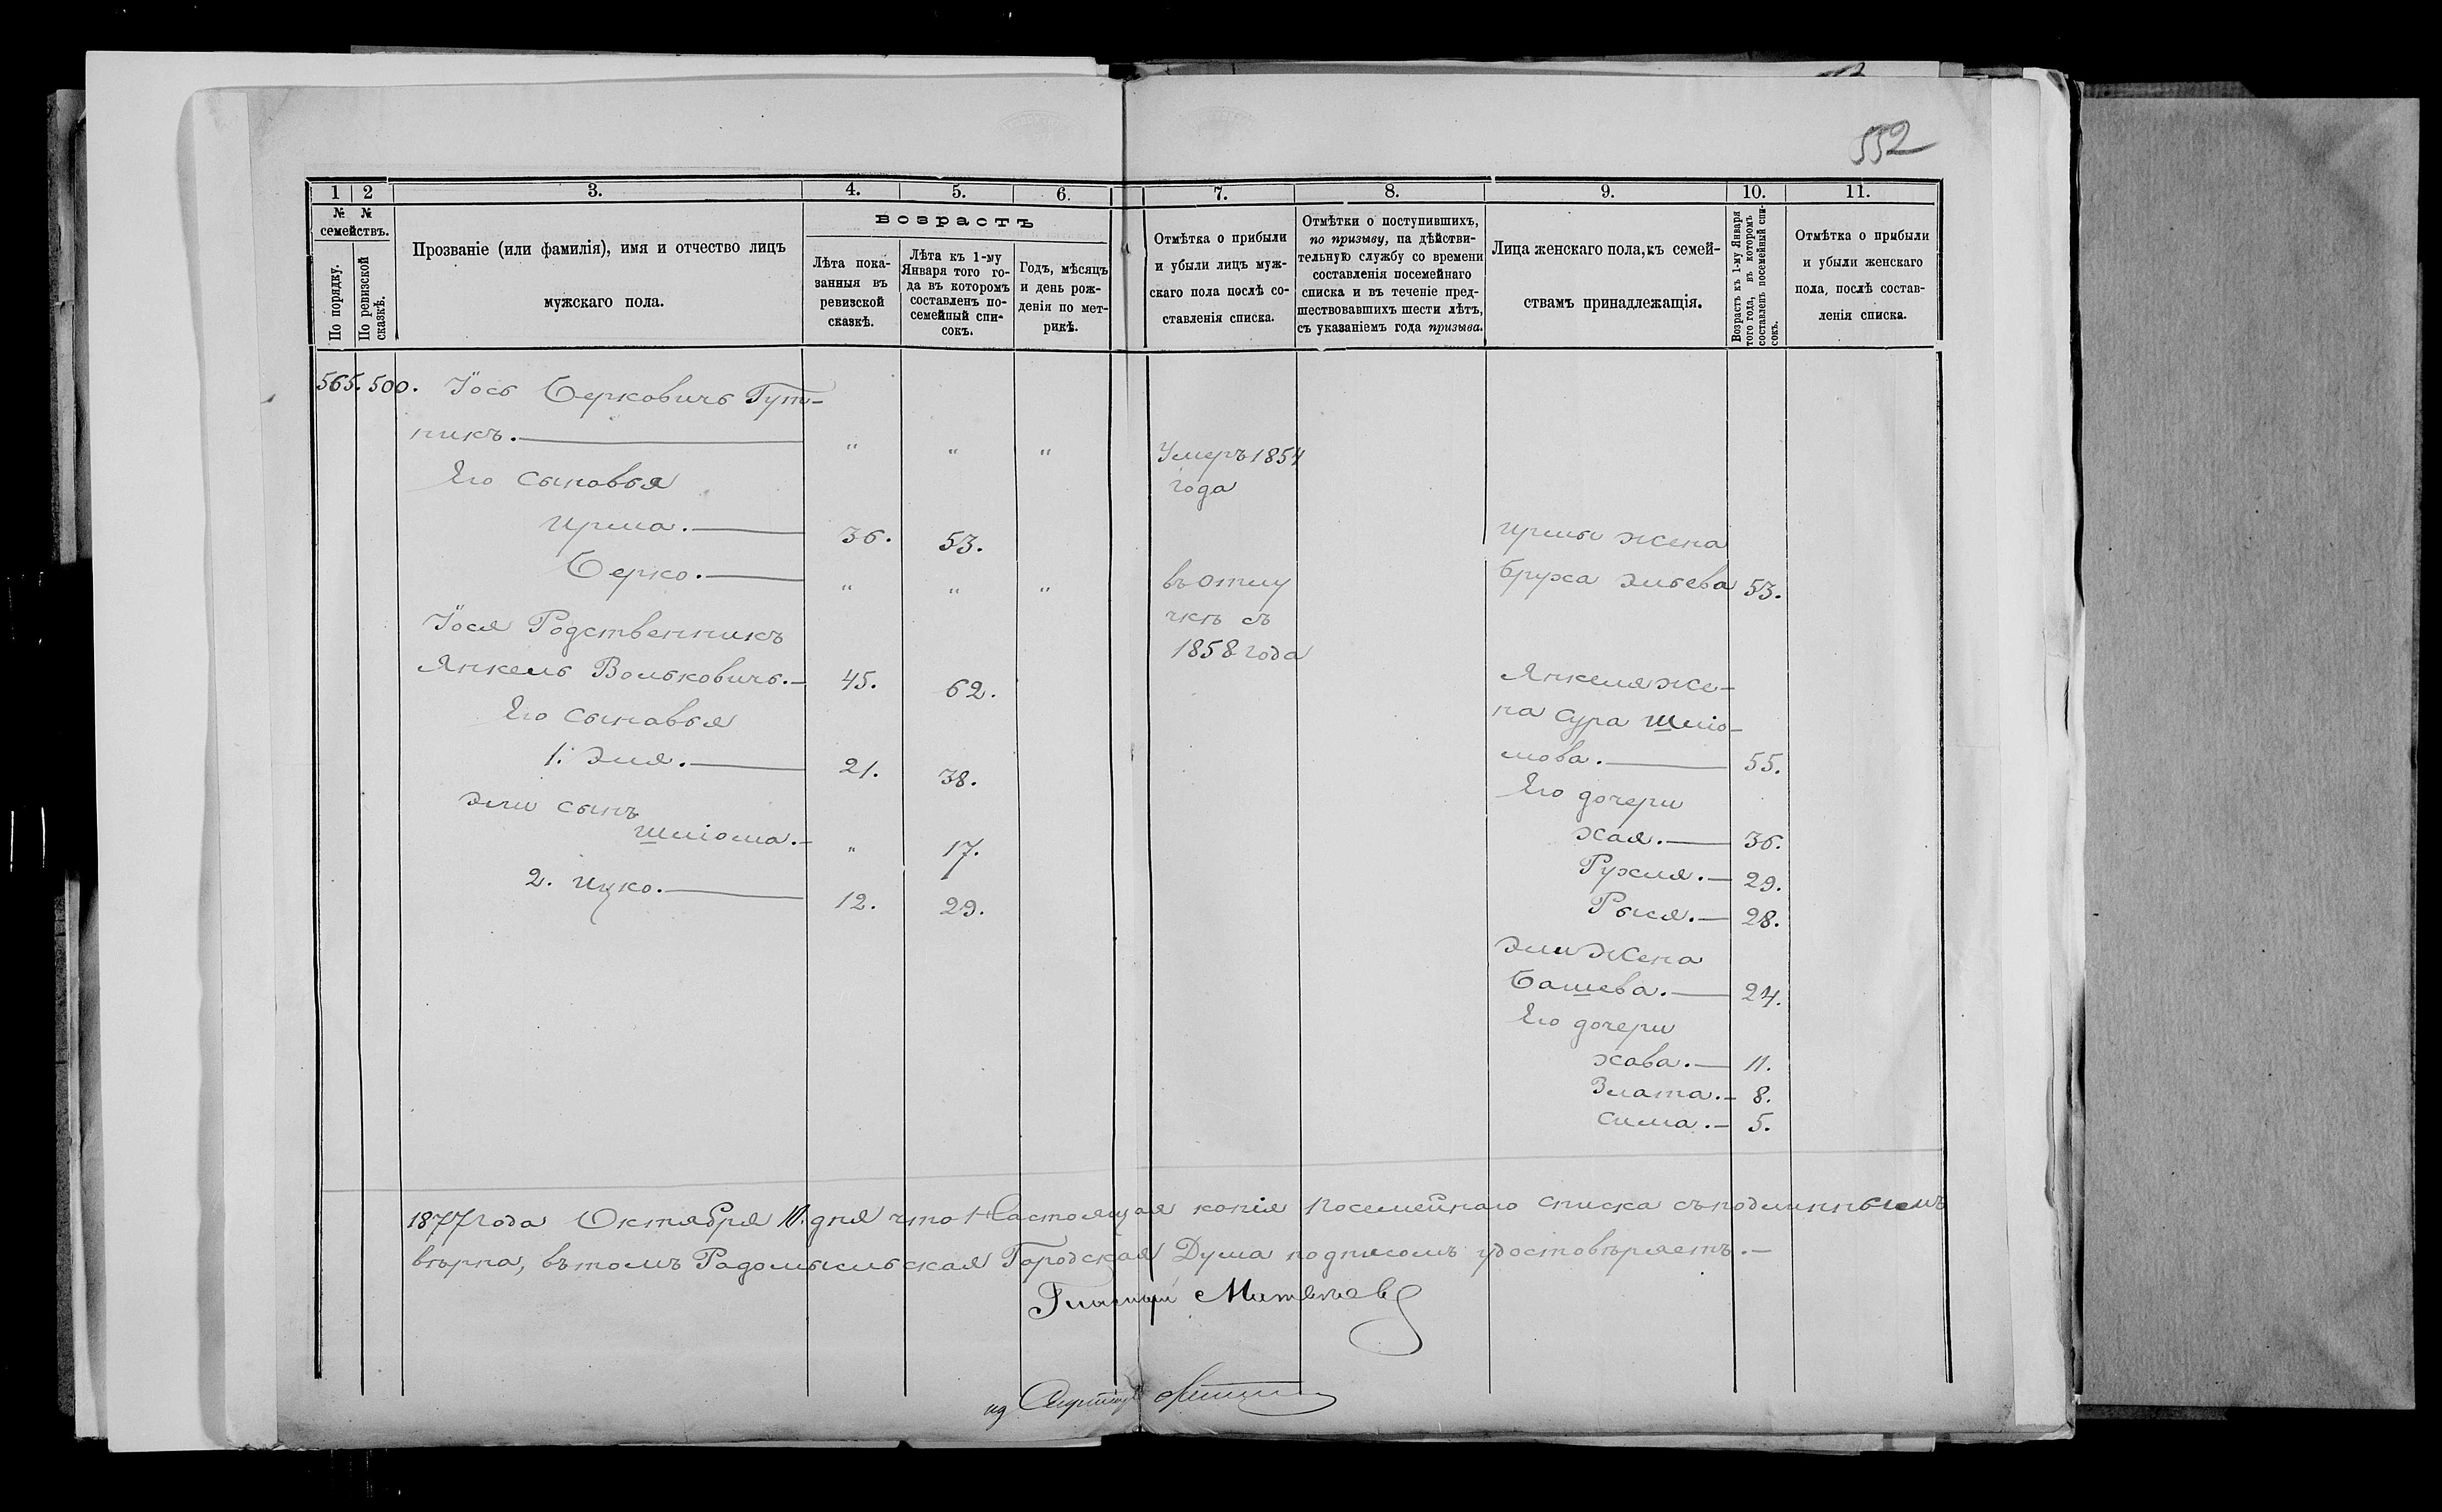 552
1 2 3. 4. 5. 6. 7. 8. 9. 10. 11.
№ №
семействъ.
По порядку.
По ревизской
сказкѣ.
Прозваніе (или фамилія), имя и отчество лицъ
мужскаго пола.
возрастъ
Лѣта пока-
занныя въ
ревизской
сказкѣ.
Лѣта къ 1-му
Января того го-
да въ которомъ
составленъ по-
семейный спи-
сокъ.
Годъ, мѣсяцъ
и день рож-
денія по мет-
рикѣ.
Отмѣтка о прибыли
и убыли лицъ муж-
скаго пола послѣ со-
ставленія списка.
Отмѣтки о поступившихъ,
по призыву, на дѣйстви-
тельную службу со времени
составленія посемейнаго
списка и въ теченіе пред-
шествовавшихъ шести лѣтъ,
съ указаніемъ года призыва.
Лица женскаго пола, къ семей-
ствамъ принадлежащія.
Возрастъ къ 1-му Января
того года, въ которомъ
составленъ посемейный спи-
сокъ.
Отмѣтка о прибыли
и убыли женскаго
пола, послѣ состав-
ленія списка.
565. 500. Іось Берковичъ Гут-
никъ. " " " Умеръ 1854
Его сыновья года
Ирма. 36. 53. Ирмы жена
Берко. " " " въ отлу Бруха Эльева 53.
Іося Родственникъ чкѣ съ
1858 года
Янкель Вольковичъ. 45. 62. Янкеля же-
Его сыновья на Сура Шліо-
1. Эля. 21. 38. мова. 55.
Эли сынъ Его дочери
Шліома. " 17. Хая. 36.
2. Ицко. 12. 29. Рухля. 29.
Рыся. 28.
Эли жена
Башева. 24.
Его дочери
Хава. 11.
Злата. 8.
Сима. 5.
1877 года Октября 10. дня что Настоящая копія Посемейнаго списка съ подлиннымъ
вѣрна, въ томъ Радомысльская Городская Дума подписомъ удостовѣряетъ.
Гласный